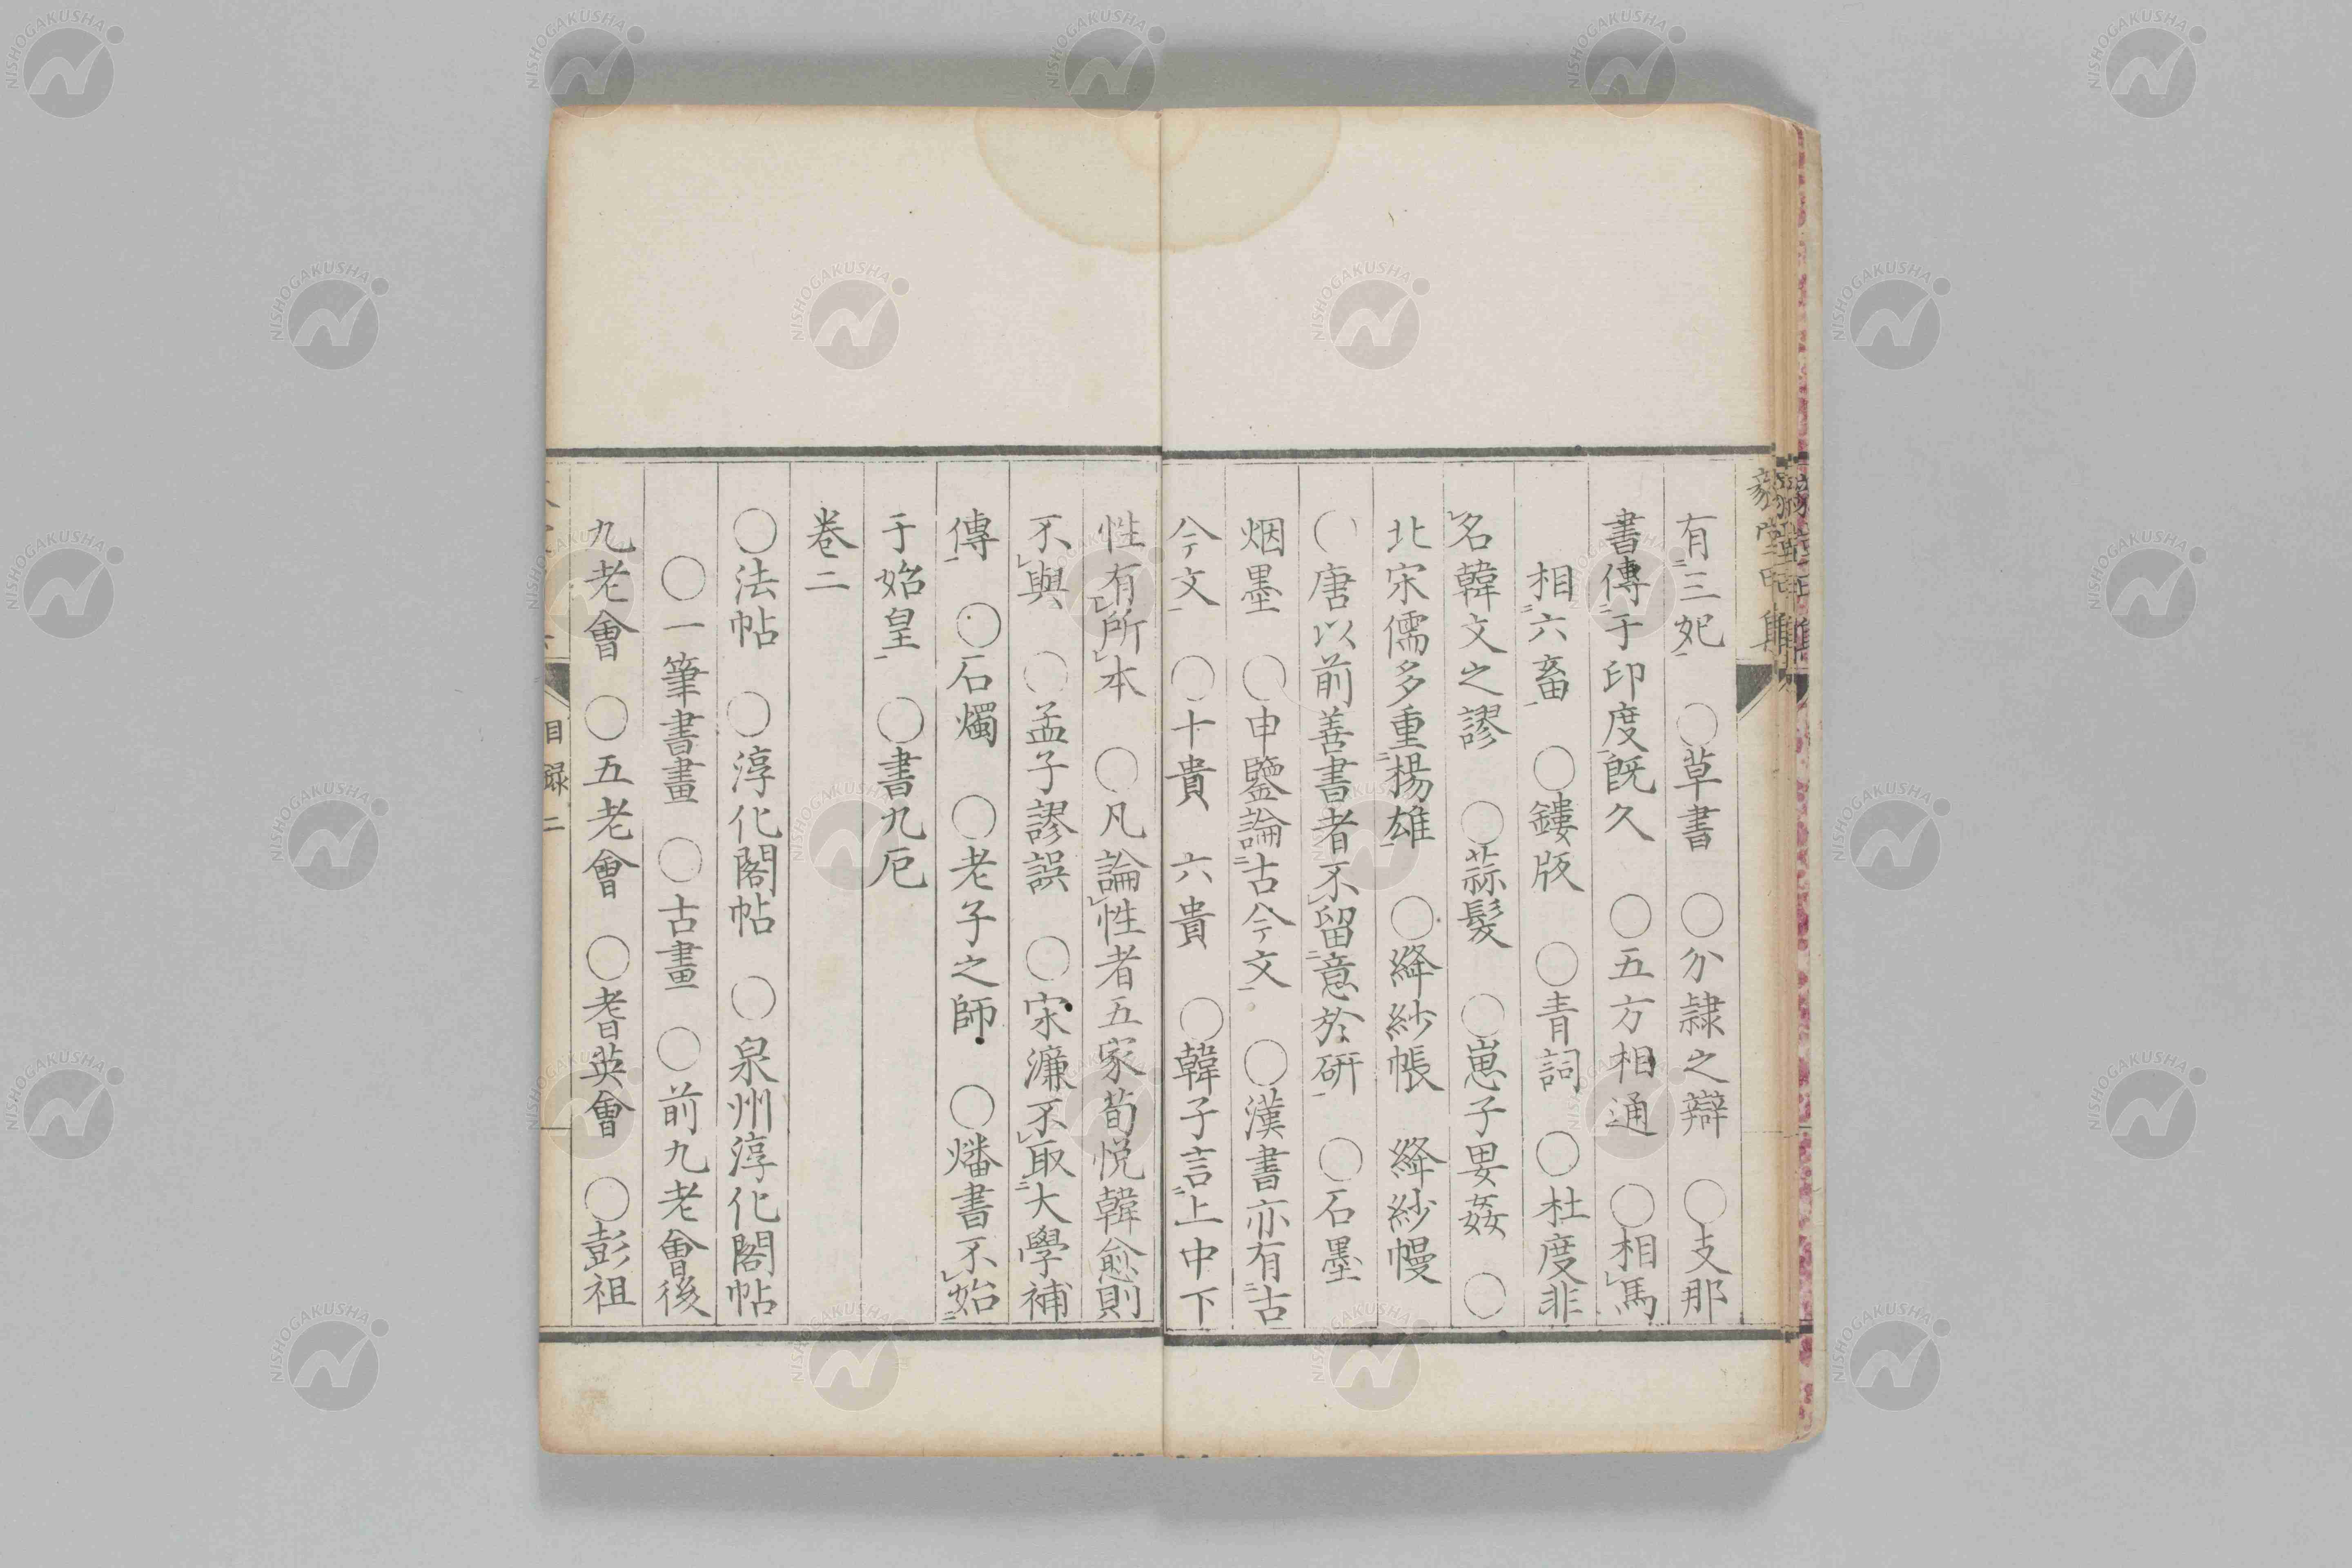 有三妃　○草書　○分隷之辯　○支那
書傳于印度既久　○五方相通　○相馬
相六畜　○鏤版　○青詞　○杜度非
名韓文之謬　○蒜髮　○崽子毋姦　○
北宋儒多重揚雄　○絳紗帳　絳紗幔
○唐以前善書者不留意於研　○石墨
烟墨　○申鑒論古今文　○漢書亦有古
今文　○十貴　六貴　○韓子言上中下
性有所本　○凡論性者五家荀悦韓愈則
不與　○孟子謬誤　○宋濂不取大學補
傳　○石燭　○老子之師　○燔書不始
于始皇　○書九厄
卷二
○法帖　○淳化閣帖　○泉州淳化閣帖
○一筆書畫　○古畫　○前九老會後
九老會　○五老會　○耆英會　○彭祖
目録 二
NISHOGAKUSHA